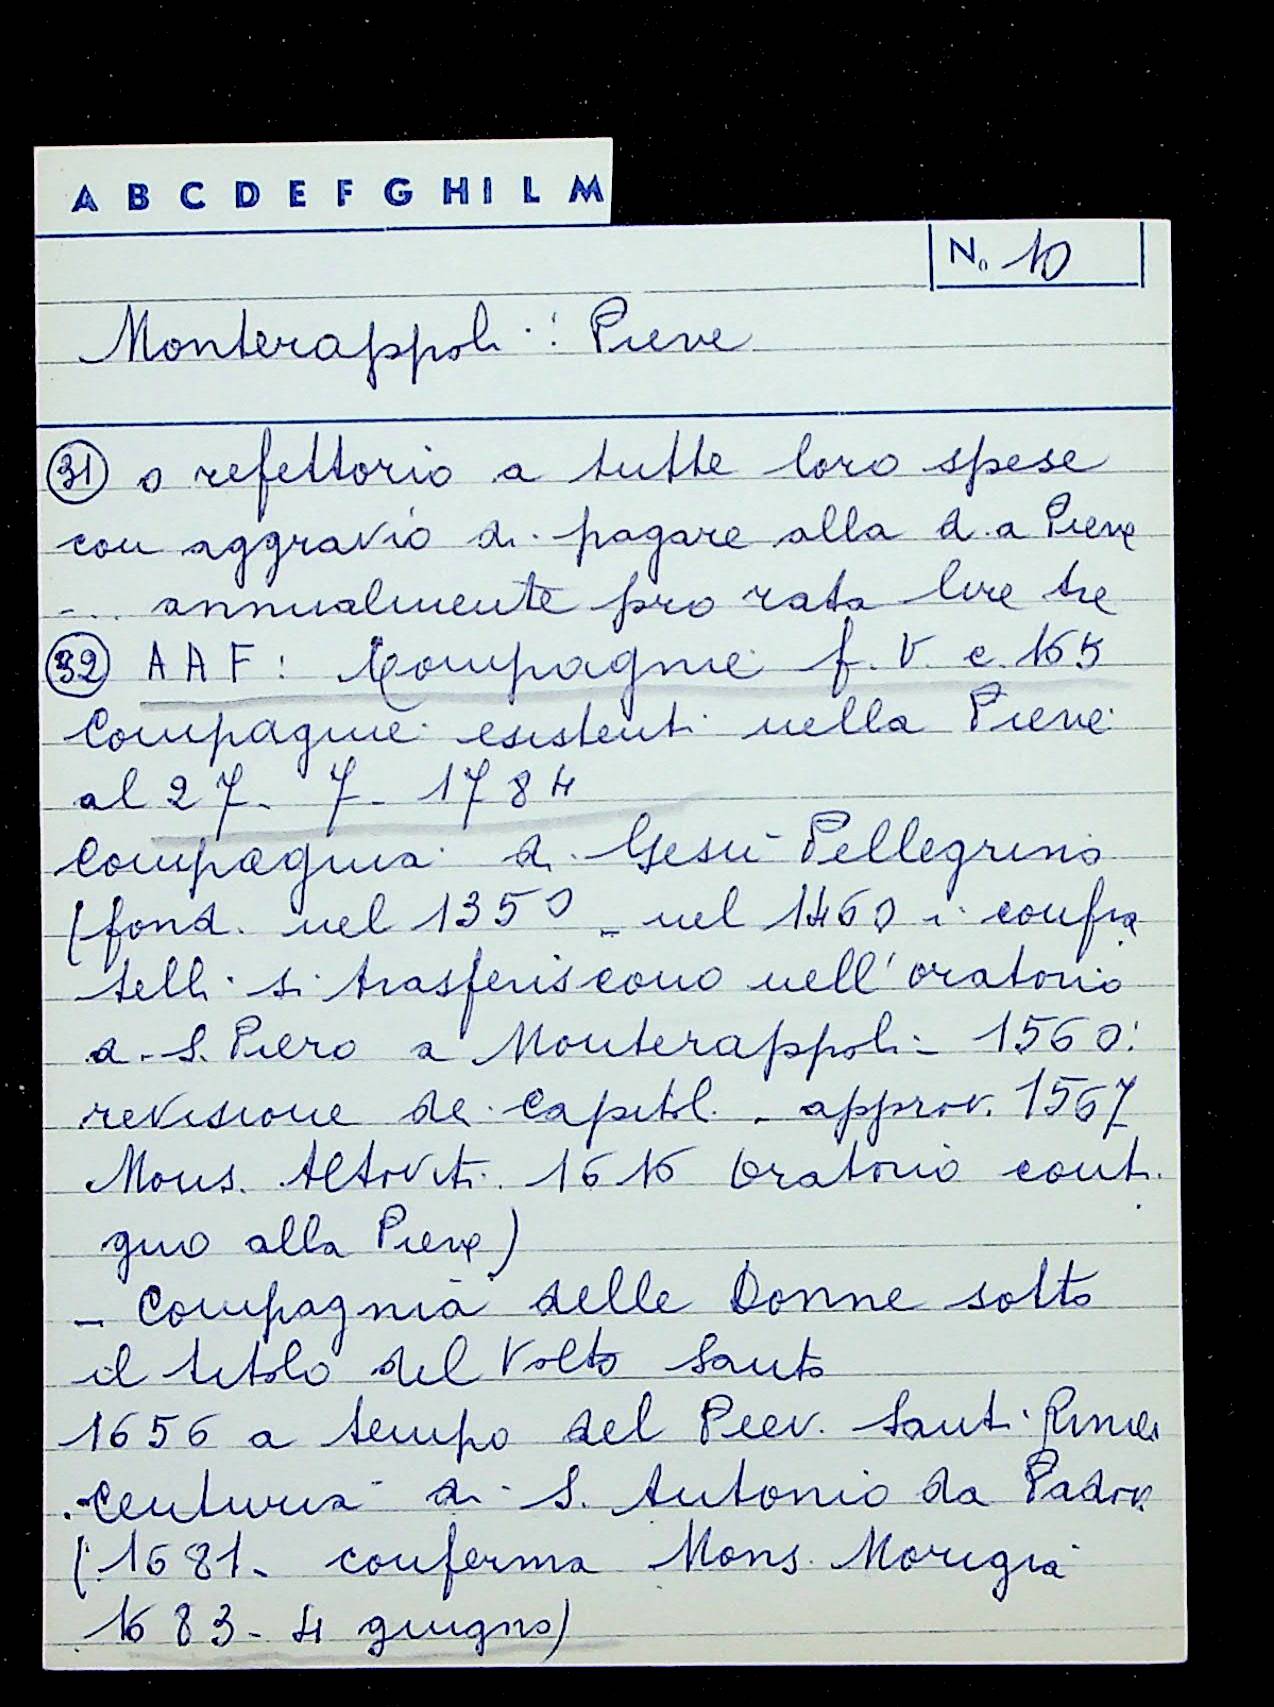 A B C D E F G H I L M
N. 10
Monterappoli: Pieve
31 o refettorio a tutte loro spese
con aggravio di pagare alla d.a Pieve
... annualmente pro rata lire tre
32 AAF: Compagnie f. V. c. 165
Compagnie esistenti nella Pieve
al 27 - 7 - 1784
Compagnia di Gesù Pellegrino
(fond. nel 1350 - nel 1460 i confra
telli si trasferiscono nell'oratorio
di S. Piero a Monterappoli - 1560:
revisione dei Capitol. - approv. 1567
Mons. Altoviti. 1616 Oratorio conti
guo alla Pieve)
- Compagnia delle Donne sotto
il titolo del Volto Santo
1656 a tempo del Piev. Santi
- Centuria di S. Antonio da Padov.
(1681 - conferma Mons. Morigia
1683 - 4 giugno)